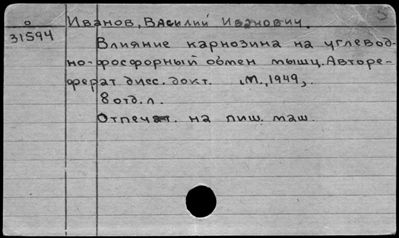 о Иванов, Василий Иванович.
31594
Влияние карнозина на углевод-
но-фосфорный обмен мышц. Авторе-
ферат дисс. докт. М., 1949,.
8 отд. л.
Отпечат. на пиш. маш.